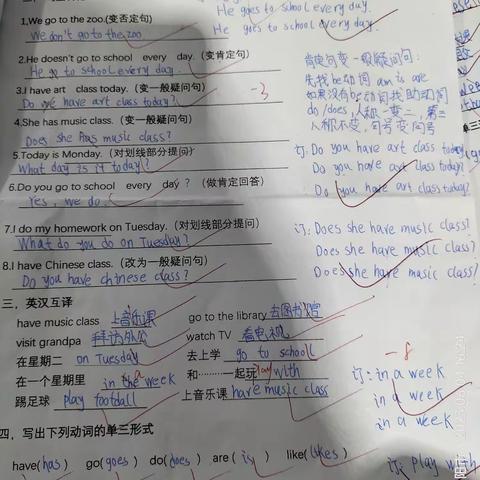 He goes to school every day.
1,We go to the zoo.(变否定句) He goes to school every day.
We don't go to the zoo
2.He doesn't go to school every day.(变肯定句) 肯定句变一般疑问句:
He go to school every day. 先找be动词 am is are
3.I have art class today.(变一般疑问句) -3 如果没有be动词找助动词
Do we have art class today? do/does,人称一变二,第三
4.She has music class.(变一般疑问句) 人称不变,句号变问号
Does she has music class? 订: Do you have art class today
5.Today is Monday.(对划线部分提问) Do you have art class today?
What day is it today? Do you have art class today?
6.Do you go to school every day ?(做肯定回答)
Yes, we do.
7.I do my homework on Tuesday.(对划线部分提问) 订: Does she have music class?
What do you do on Tuesday? Does she have music class?
8.I have Chinese class.(改为一般疑问句) Does she have music class?
Do you have chinese class?
三,英汉互译
have music class 上音乐课 go to the library 去图书馆
visit grandpa 拜访外公 watch TV 看电视
在星期二 on Tuesday 去上学 go to school -8
在一个星期里 in the a week 和………一起玩 play with 订: in a week
踢足球 play football 上音乐课 have music class in a week
in a week
四,写出下列动词的单三形式
have( has ) go( goes ) do( does ) are( is ) like( likes ) 订: play with